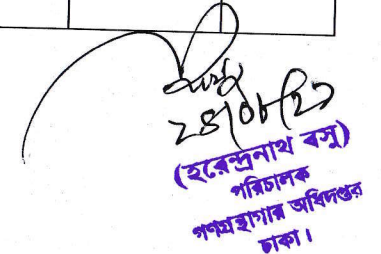 (হরেন্দ্রনাথ বসু)
পরিচালক
গণগ্রন্থাগার অধিদপ্তর
ঢাকা।